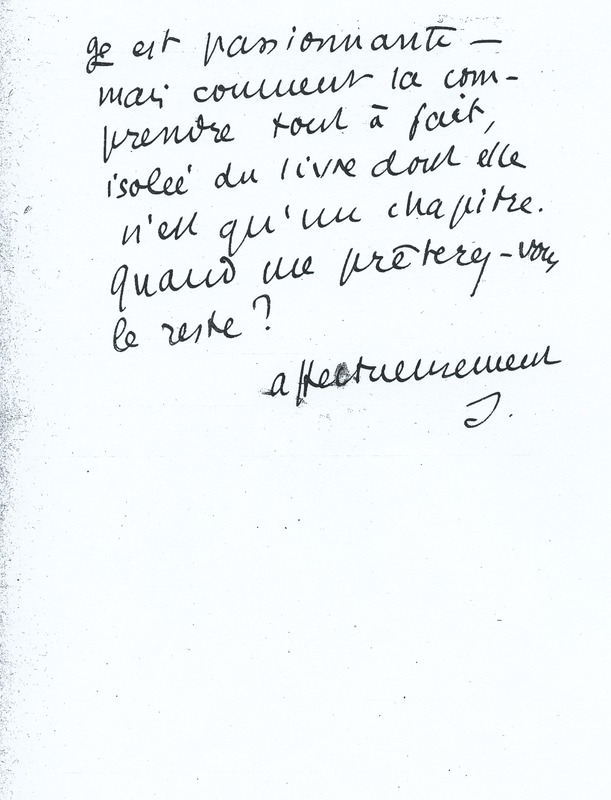 ge est passionnante —
mais comment la com-
prendre tout à fait,
isolée du livre dont elle
n'est qu'un chapitre.
Quand me prêterez-vous
le reste ?
affectueusement
J.